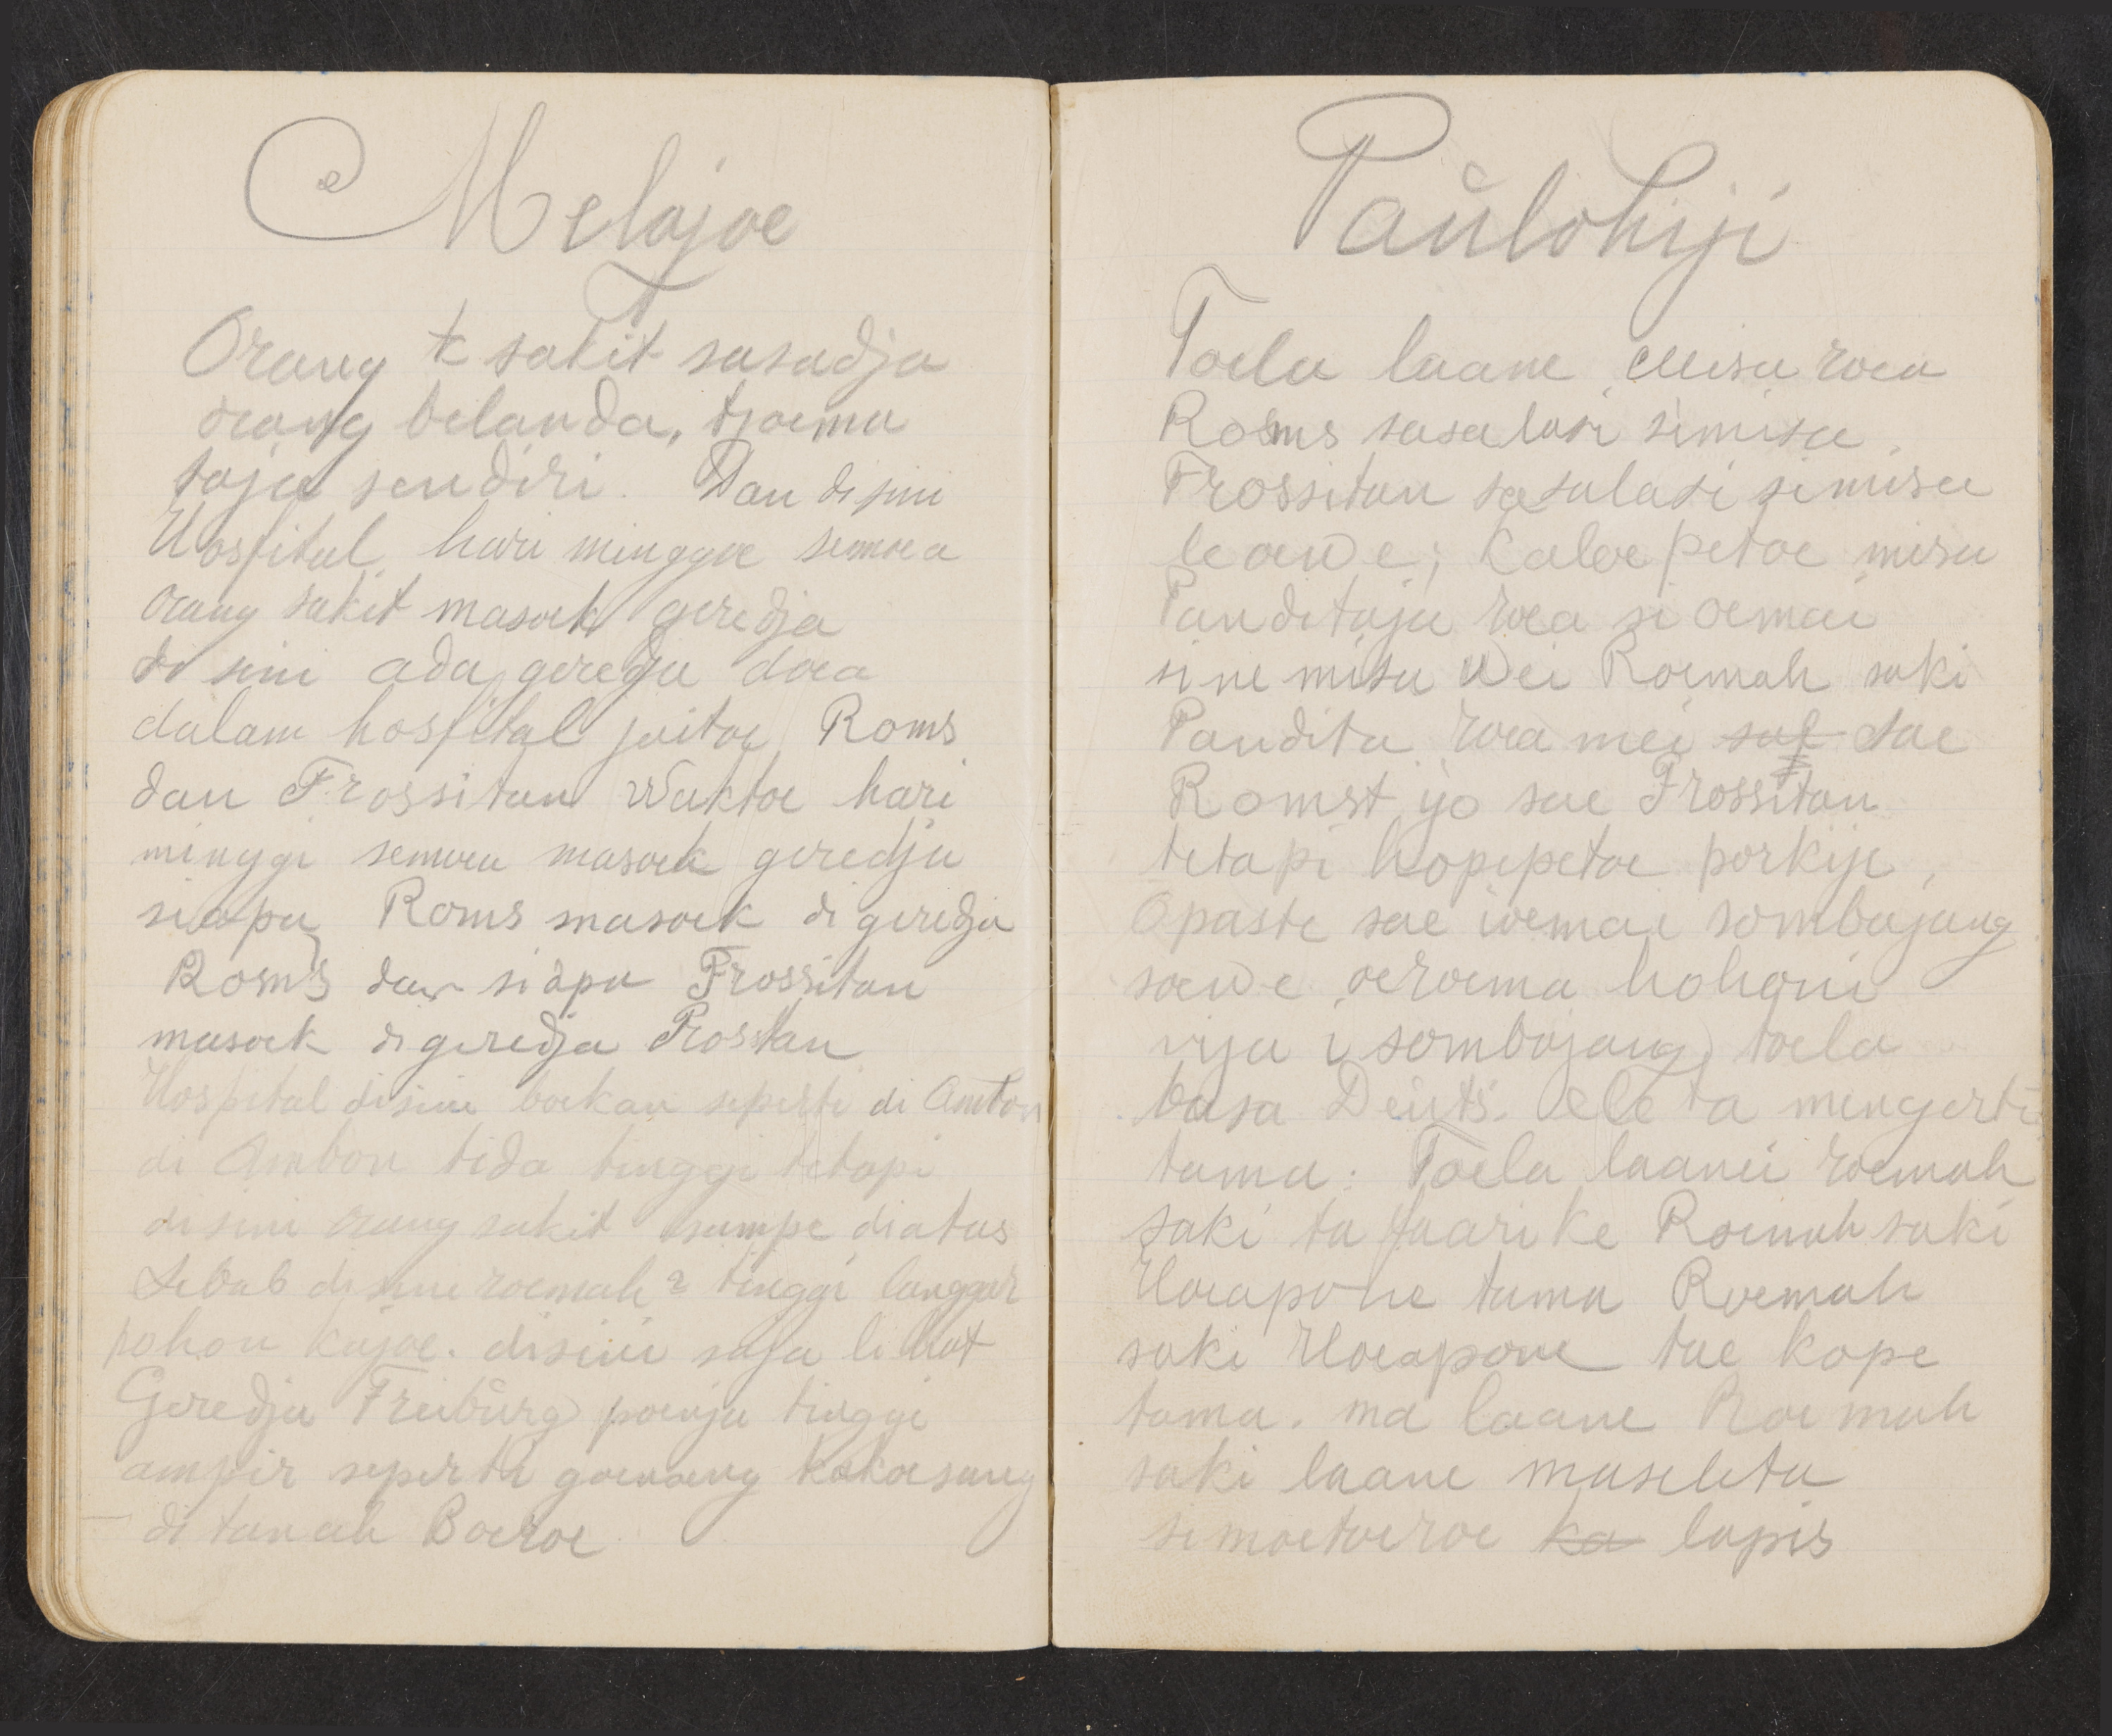 Melajoe
Orang sakit sasadja
orang belanda, tjoema
saja sendiri. Dan disini
Hospital hari minggoe semoea
orang sakit masoek geredja
di sini ada geredja doea
dalam hospital jaitoe Roms
dan Frossitan Waktoe hari
minggi semoea masoek geredja
siapa Roms masoek di geredja
Roms dan siapa Frossitan
masoek di geredja Prostan
Hospital disini boekan seperti di Ambon
di Ambon tida tinggi tetapi
disini orang sakit sampe diatas
Sebab disini roemah2 tinggi langgar
pohon kajoe. disini saja lihat
Geredja Freiburg poenja tinggi
ampir seperti goenoeng kakoesang
di tanah Boeroe
Paŭlohiji
Toela laane misa roea
Roms sasalasi simisa
Frossitan sasalasi simisa
leoewe; Kaloe petoe misa
Panditaja roea si oemai
sine misa wei Roemah saki
Pandita roea mei sae sae
Romst ijo sae Frossitan
tetapi hopepetoe porkije,
Opaste sae iwemai sombajang
soewe oeroema hohoni
irja i sombajang, toela
basa Deuts. ele ta mengerti
tama. Toela laanei roemah
saki ta faarike Roemah saki
Hoeapone tama Roemah
saki Hoeapone tae kope
tama. ma laane Roemah
saki laane maseleta
simoetoeroe ka lapis